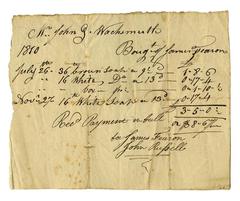 Mr. John G. Wachsmuth
1810 Bought of James Fearon
July 26th 36 lb brown Soap a 9 1-8-6
" 16 White Do a 13d 0-17-4
box 0-1-10½
Novr 27th 16 lb White Soap a 13d 0-17-4
3-5-0½
Recd Payment in full
for James Fearon
John Russell